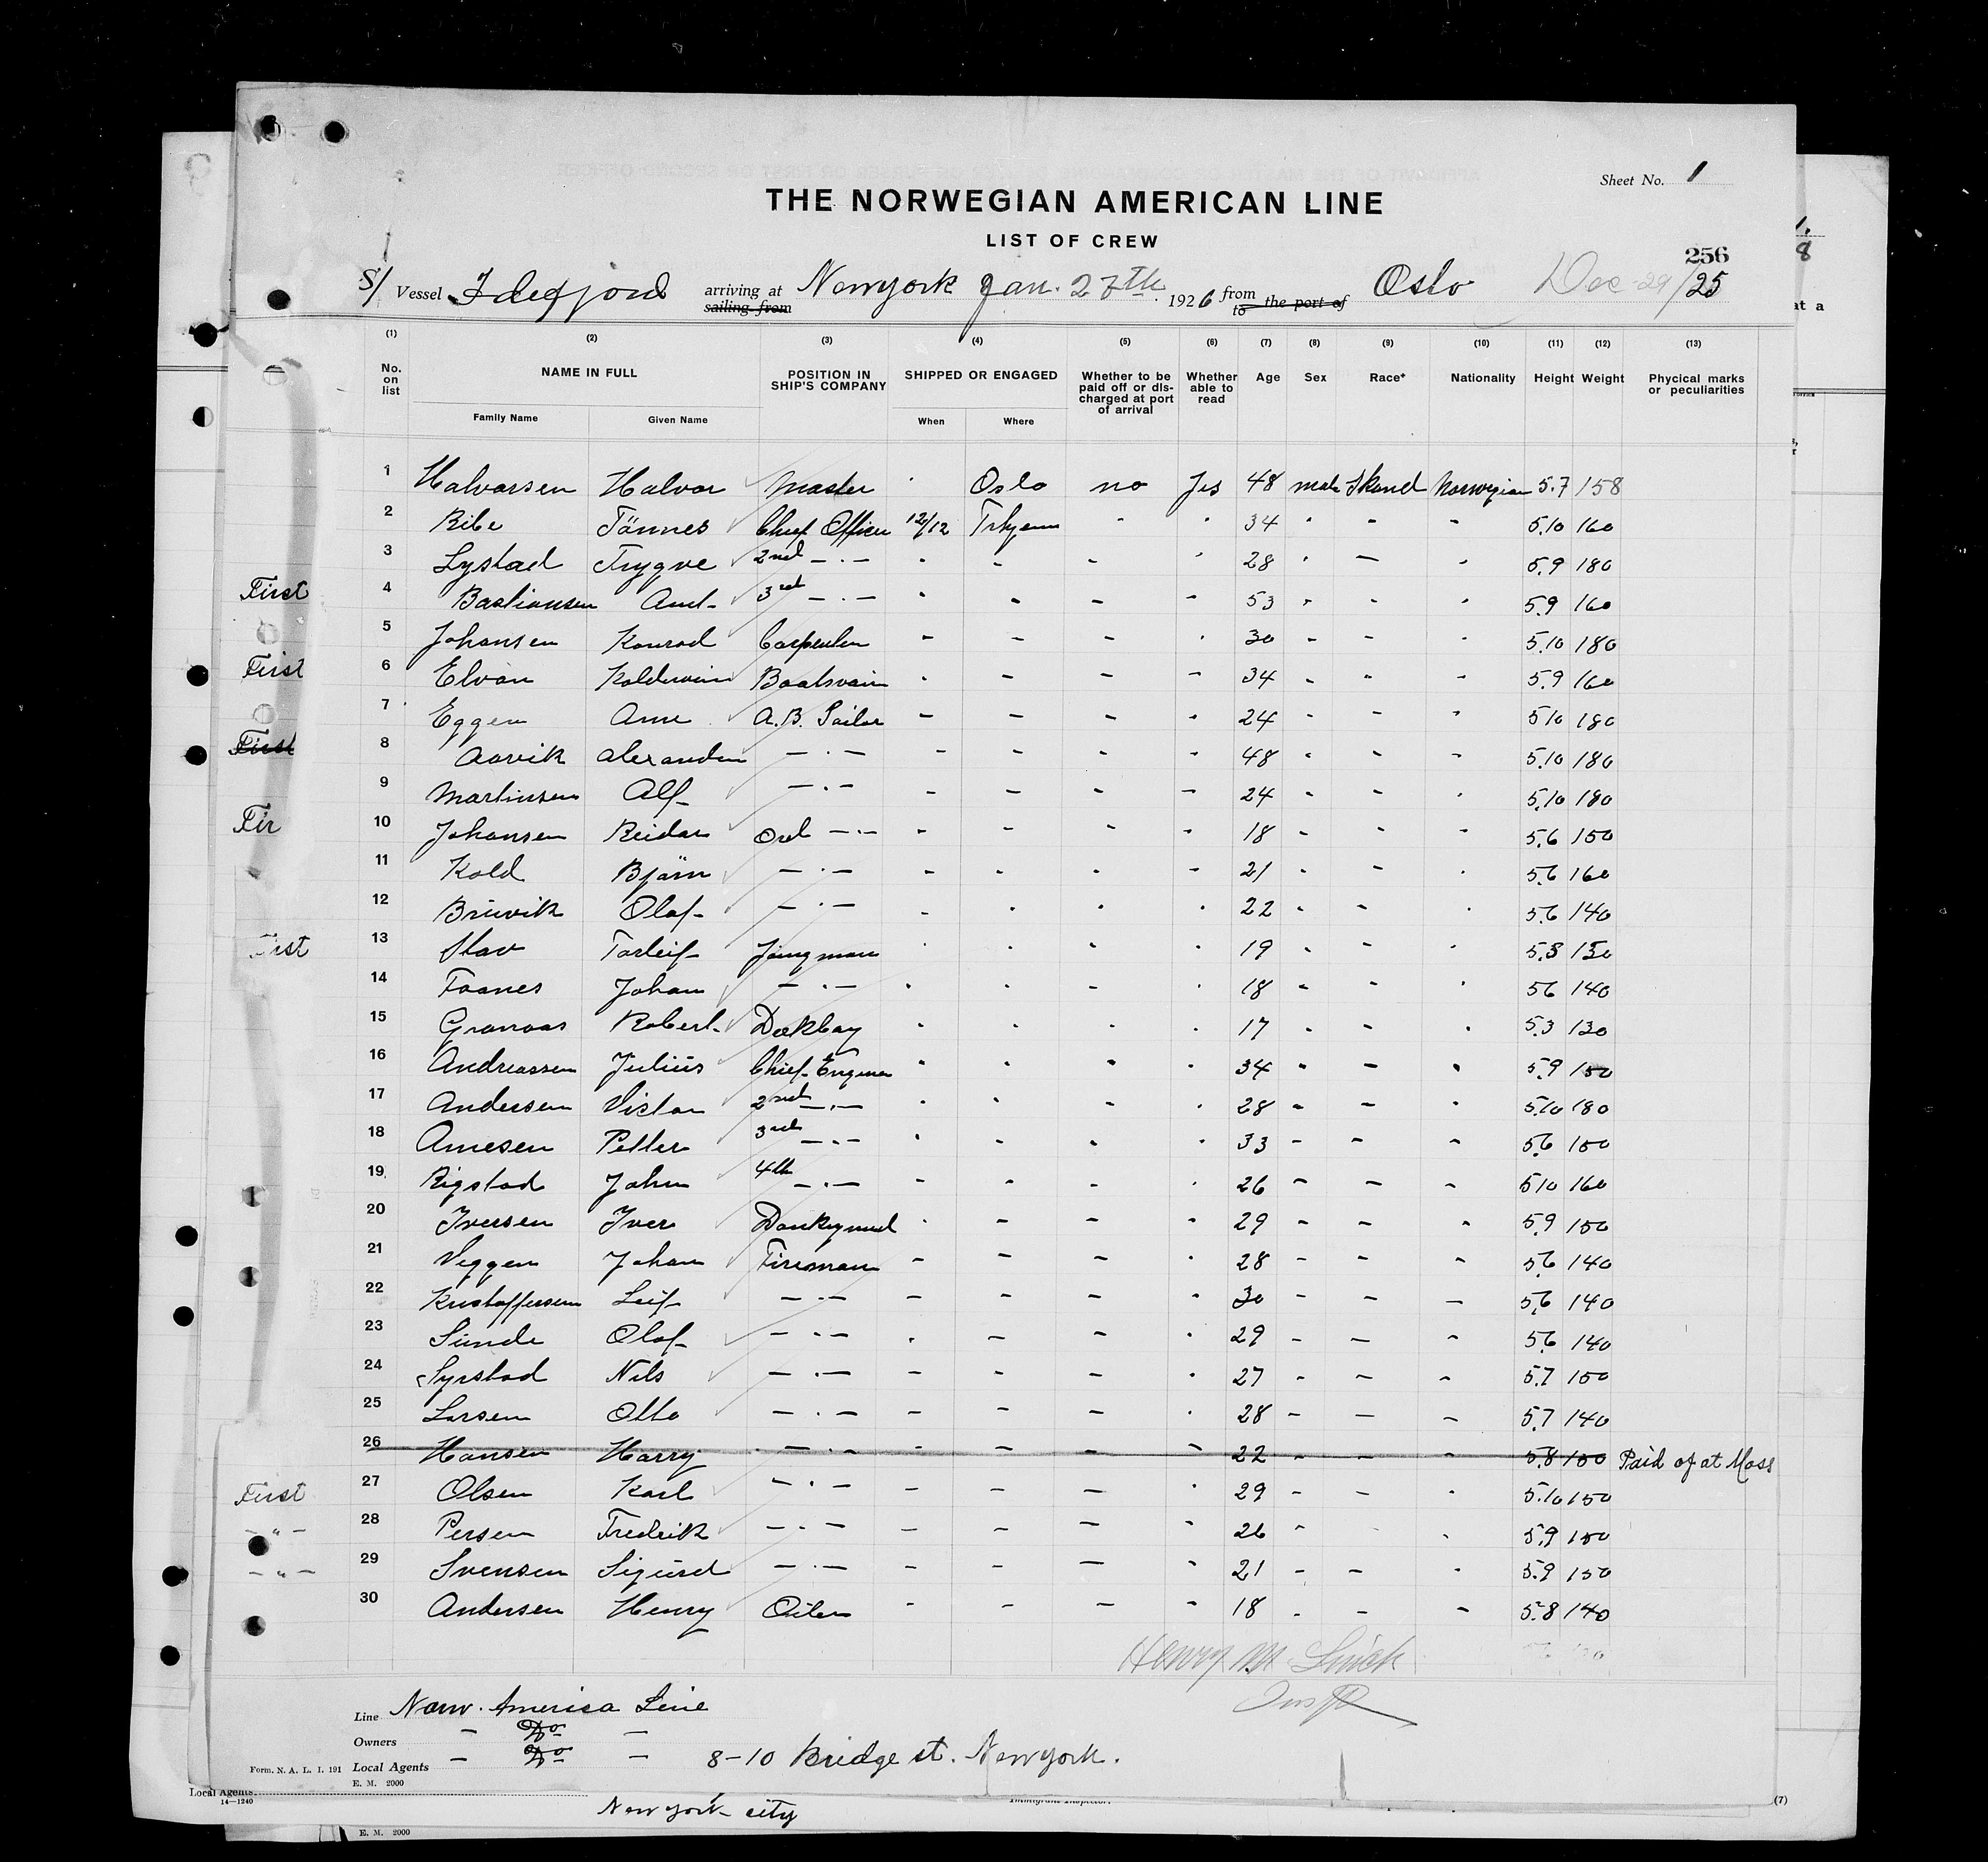 Sheet No. 1
THE NORWEGIAN AMERICAN LINE
LIST OF CREW
256
S/ Vessel Idefjord arriving at sailing from Newyork Jan. 27th 1926 from to the port of Oslo Dec 29/25
(1) (2) (3) (4) (5) (6) (7) (8) (9) (10) (11) (12) (13)
No. on list NAME IN FULL POSITION IN SHIP'S COMPANY SHIPPED OR ENGAGED Whether to be paid off or discharged at port of arrival Whether able to read Age Sex Race* Nationality Height Weight Phycical marks or peculiarities
Family Name Given Name When Where
1 Halvorsen Halvor Master Oslo no Yes 48 male Skand Norwegian 5.7 158
2 Ribe Tönnes Chief Officer 12/12 34 5.10 160
3 Lystad Trygve 2nd - . - 28 5.9 180
First 4 Bastiansen 3rd - . - 53 5.9 160
5 Johansen Konrad Carpenter 30 5.10 180
First 6 Elvan Boatsvain 34 5.9 160
7 Eggen Arne A.B. Sailor 24 5.10 180
First 8 Aarvik Alexander - . - 48 5.10 180
9 Martinsen Alf - . - 24 5.10 180
Fir 10 Johansen Reidar Ord - . - 18 5.6 150
11 Kold Björn - . - 21 5.6 160
12 Brüvik Olaf - . - 22 5.6 140
13 Stav Torleif Jungman 19 5.3 130
14 Faanes Johan - . - 18 5.6 140
15 Granaas Robert Dekboy 17 5.3 130
16 Andreassen Julius Chief Enginer 34 5.9 150
17 Andersen Victor 2nd - . - 28 5.10 180
18 Arnesen Petter 3rd - . - 33 5.6 150
19 Rigstad John 4th - . - 26 5.10 160
20 Iversen Iver Donkeymand 29 5.9 150
21 Veggen Johan Fireman 28 5.6 140
22 Kristoffersen Leif - . - 30 5.6 140
23 Sunde Olaf - . - 29 5.6 140
24 Syrstad Nils - . - 27 5.7 150
25 Larsen Otto - . - 28 5.7 140
26 Hansen Harry - . - 22 5.8 150 Paid of at Moss
First 27 Olsen Karl - . - 29 5.10 150
- " - 28 Persen Fredrik - . - 26 5.9 150
- " - 29 Svensen Sigurd - . - 21 5.9 150
30 Andersen Henry Oiler 18 5.8 140
Henry M
Line Norw. America Line
Owners - Do -
Local Agents - Do - 8-10 Bridge st. Newyork.
Form. N. A. L. I. 191
E. M. 2000
Local Agents
14—1240
New york city
Immigrant Inspector.
(7)
E. M. 2000